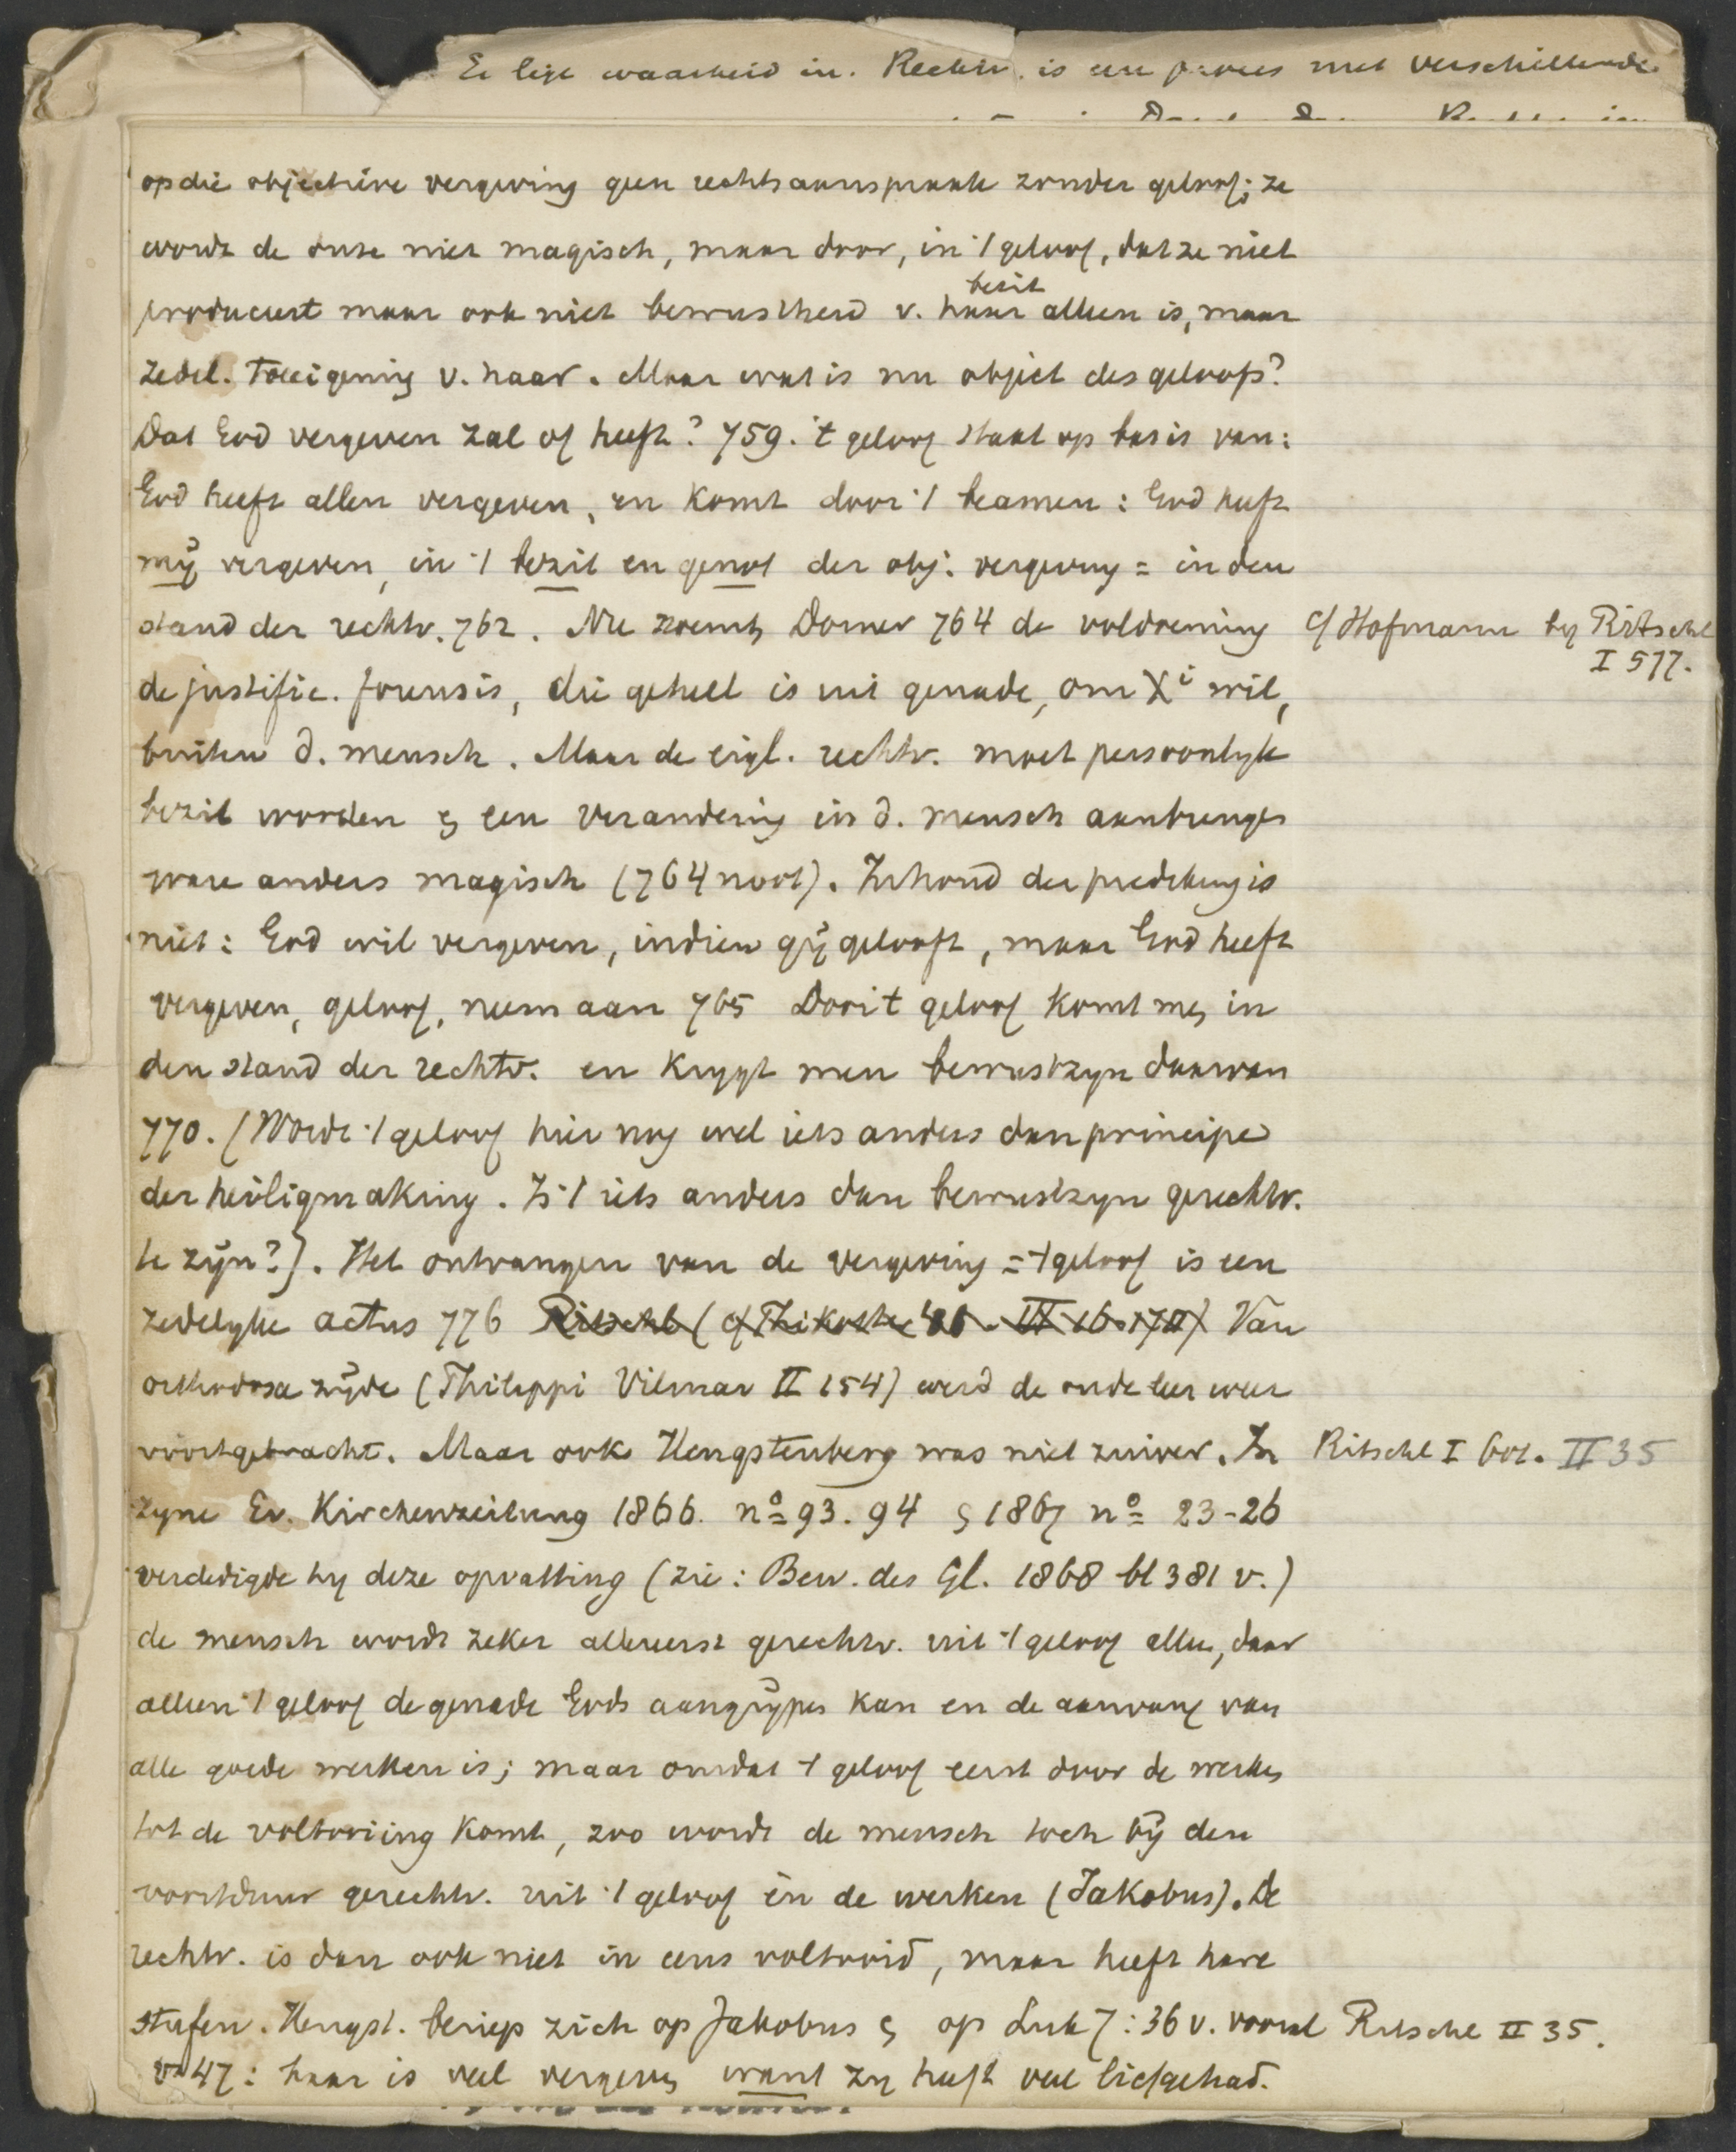 Er ligt waarheid in. Rechtv. is een proces met verschillende
op die objectieve vergeving geen rechtsaanspraak zonder geloof; ze
wordt de onze niet magisch, maar door, in 't geloof, dat ze niet
bezit
produceert maar ook niet bewustheid v. haar alleen is, maar
zedel. Toeëigening v. haar. Maar wat is nu object des geloofs?
Dat God vergeven zal of heeft? 759. 't geloof staat op basis van:
God heeft allen vergeven, en komt door 't beamen: God heeft
mij vergeven, in 't bezit en genot der obj. vergeving = in den
stand der rechtv. 762. Nu noemt Dorner 764 de voldoening
c/ Hofmann by Ritschl
I 577.
de justific. forensis, die geheel is uit genade, om Xi wil,
buiten d. mensch. Maar de eigl. rechtv. moet persoonlyk
bezit worden & een verandering in d. mensch aanbrengen
ware anders magisch (764 noot). Inhoud der prediking is
niet: God wil vergeven, indien gij gelooft, maar God heeft
vergeven, geloof, neem aan 765 Door 't geloof komt men in
den stand der rechtv. en krygt men bewustzyn daarvan
770. (Wordt 't geloof hier nog wel iets anders dan principe
der heiligmaking. Is 't iets anders dan bewustzyn gerechtv.
te zijn?). Het ontvangen van de vergeving = 't geloof is een
zedelyke actus 776 Ritschl Van
orthodoxe zijde (Philippi Vilmar II 154) werd de oude leer weer
voortgebracht. Maar ook Hengstenberg was niet zuiver. In
Ritschl I 601. II 35
zyne Ev. Kirchenzeitung 1866. no 93. 94 & 1867 no 23-26
verdedigde hy deze opvatting (zie: Bew. des Gl. 1868 bl 381 v.)
de mensch wordt zeker allereerst gerechtv. uit 't geloof alleen, daar
alleen 't geloof de genade Gods aangrijpen kan en de aanvang van
alle goede werken is; maar omdat 't geloof eerst door de werken
tot de voltooiing komt, zoo wordt de mensch toch bij den
voortduur gerechtv. uit 't geloof èn de werken (Jakobus). De
rechtv. is dan ook niet in eens voltooid, maar heeft hare
stufen. Hengst. beriep zich op Jakobus & op Luk 7:36 v. vooral
Ritschl II 35.
vs 47: haar is veel vergeven want zy heeft veel liefgehad.